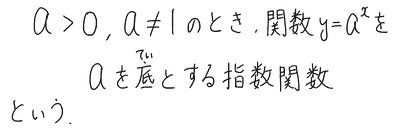 a > 0, a ≠ 1 のとき, 関数 y=aˣ を
てい
a を底とする指数関数
という.